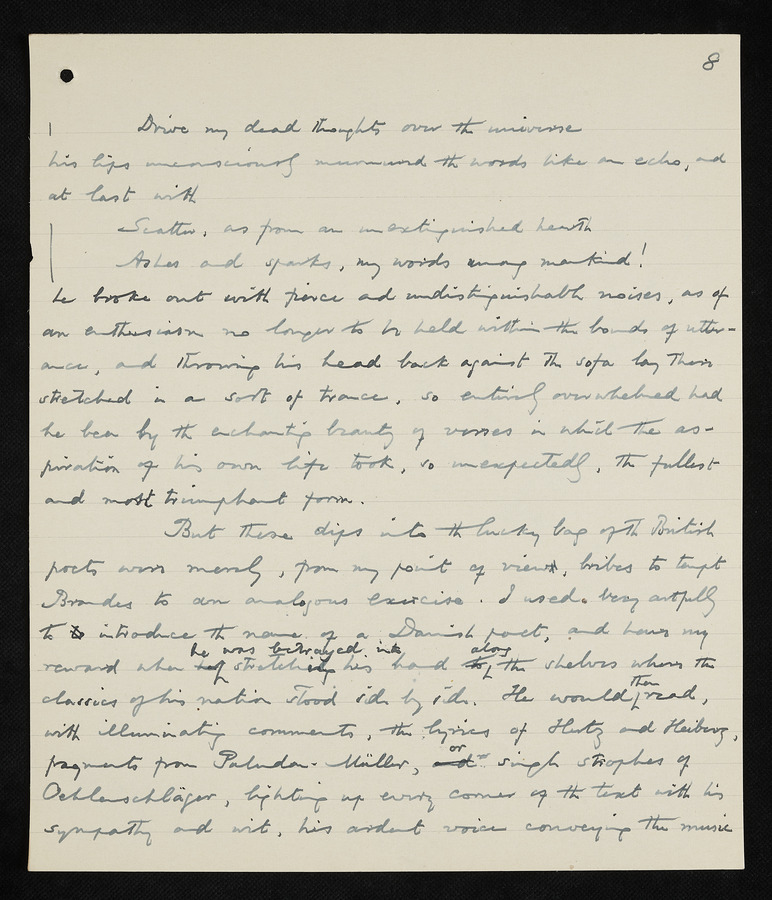 8
Drive my dead thoughts over the universe
his lips unconsciously murmured the words like an echo, and
at last with
Scatter, as from an unextinguished hearth
Ashes and sparks, my words among mankind!
he broke out with fierce and undistinguishable noises, as of
an enthusiasm no longer to be held within the bounds of utter-
ance, and throwing his head back against the sofa lay there
stretched in a sort of trance, so entirely overwhelmed had
he been by the enchanting beauty of verses in which the as-
piration of his own life took, so unexpectedly, the fullest
and most triumphant form.
But these dips into the lucky bag of the British
poets were merely, from my point of view, bribes to tempt
Brandes to an analogous exercise. I used very artfully
to introduce the name of a Danish poet, and have my
he was betrayed into along
reward when stretching his hand the shelves where the
then
classics of his nation stood side by side. He would read,
with illuminating comments, the lyrics of Hertz and Heiberg,
or
fragments from Paludan-Müller, and single strophes of
Oehlenschläger, lighting up every corner of the text with his
sympathy and wit, his ardent voice conveying the music